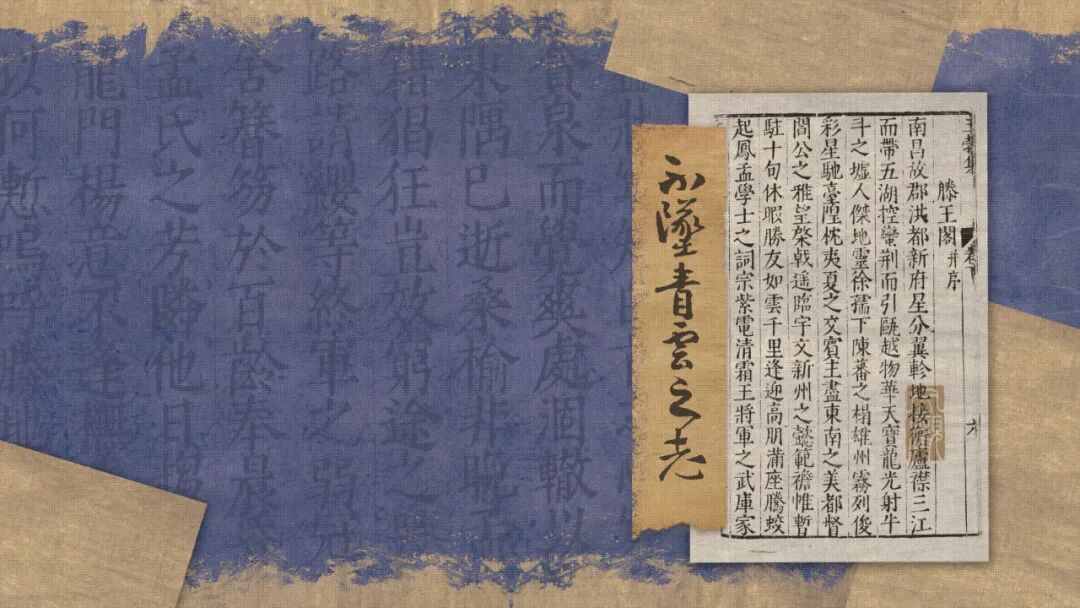 滕王閣并序
南昌故郡洪都新府星分翼軫地接衡廬襟三江
而帶五湖控蠻荆而引甌越物華天寶龍光射牛
斗之墟人傑地靈徐孺下陳蕃之榻雄州霧列俊
彩星馳臺隍枕夷夏之交賓主盡東南之美都督
閻公之雅望棨戟遥臨宇文新州之懿範襜帷暫
駐十旬休暇勝友如雲千里逢迎高朋滿座騰蛟
起鳳孟學士之詞宗紫電清霜王將軍之武庫家
不墜青雲之志
貪泉而覺爽處涸轍以
東隅已逝桑榆非晚孟
籍猖狂豈效窮途之
路請纓等終軍之弱冠
舍簪笏於百齡奉晨昏
孟氏之芳鄰他日
龍門楊意不逢
以何慙嗚呼勝地